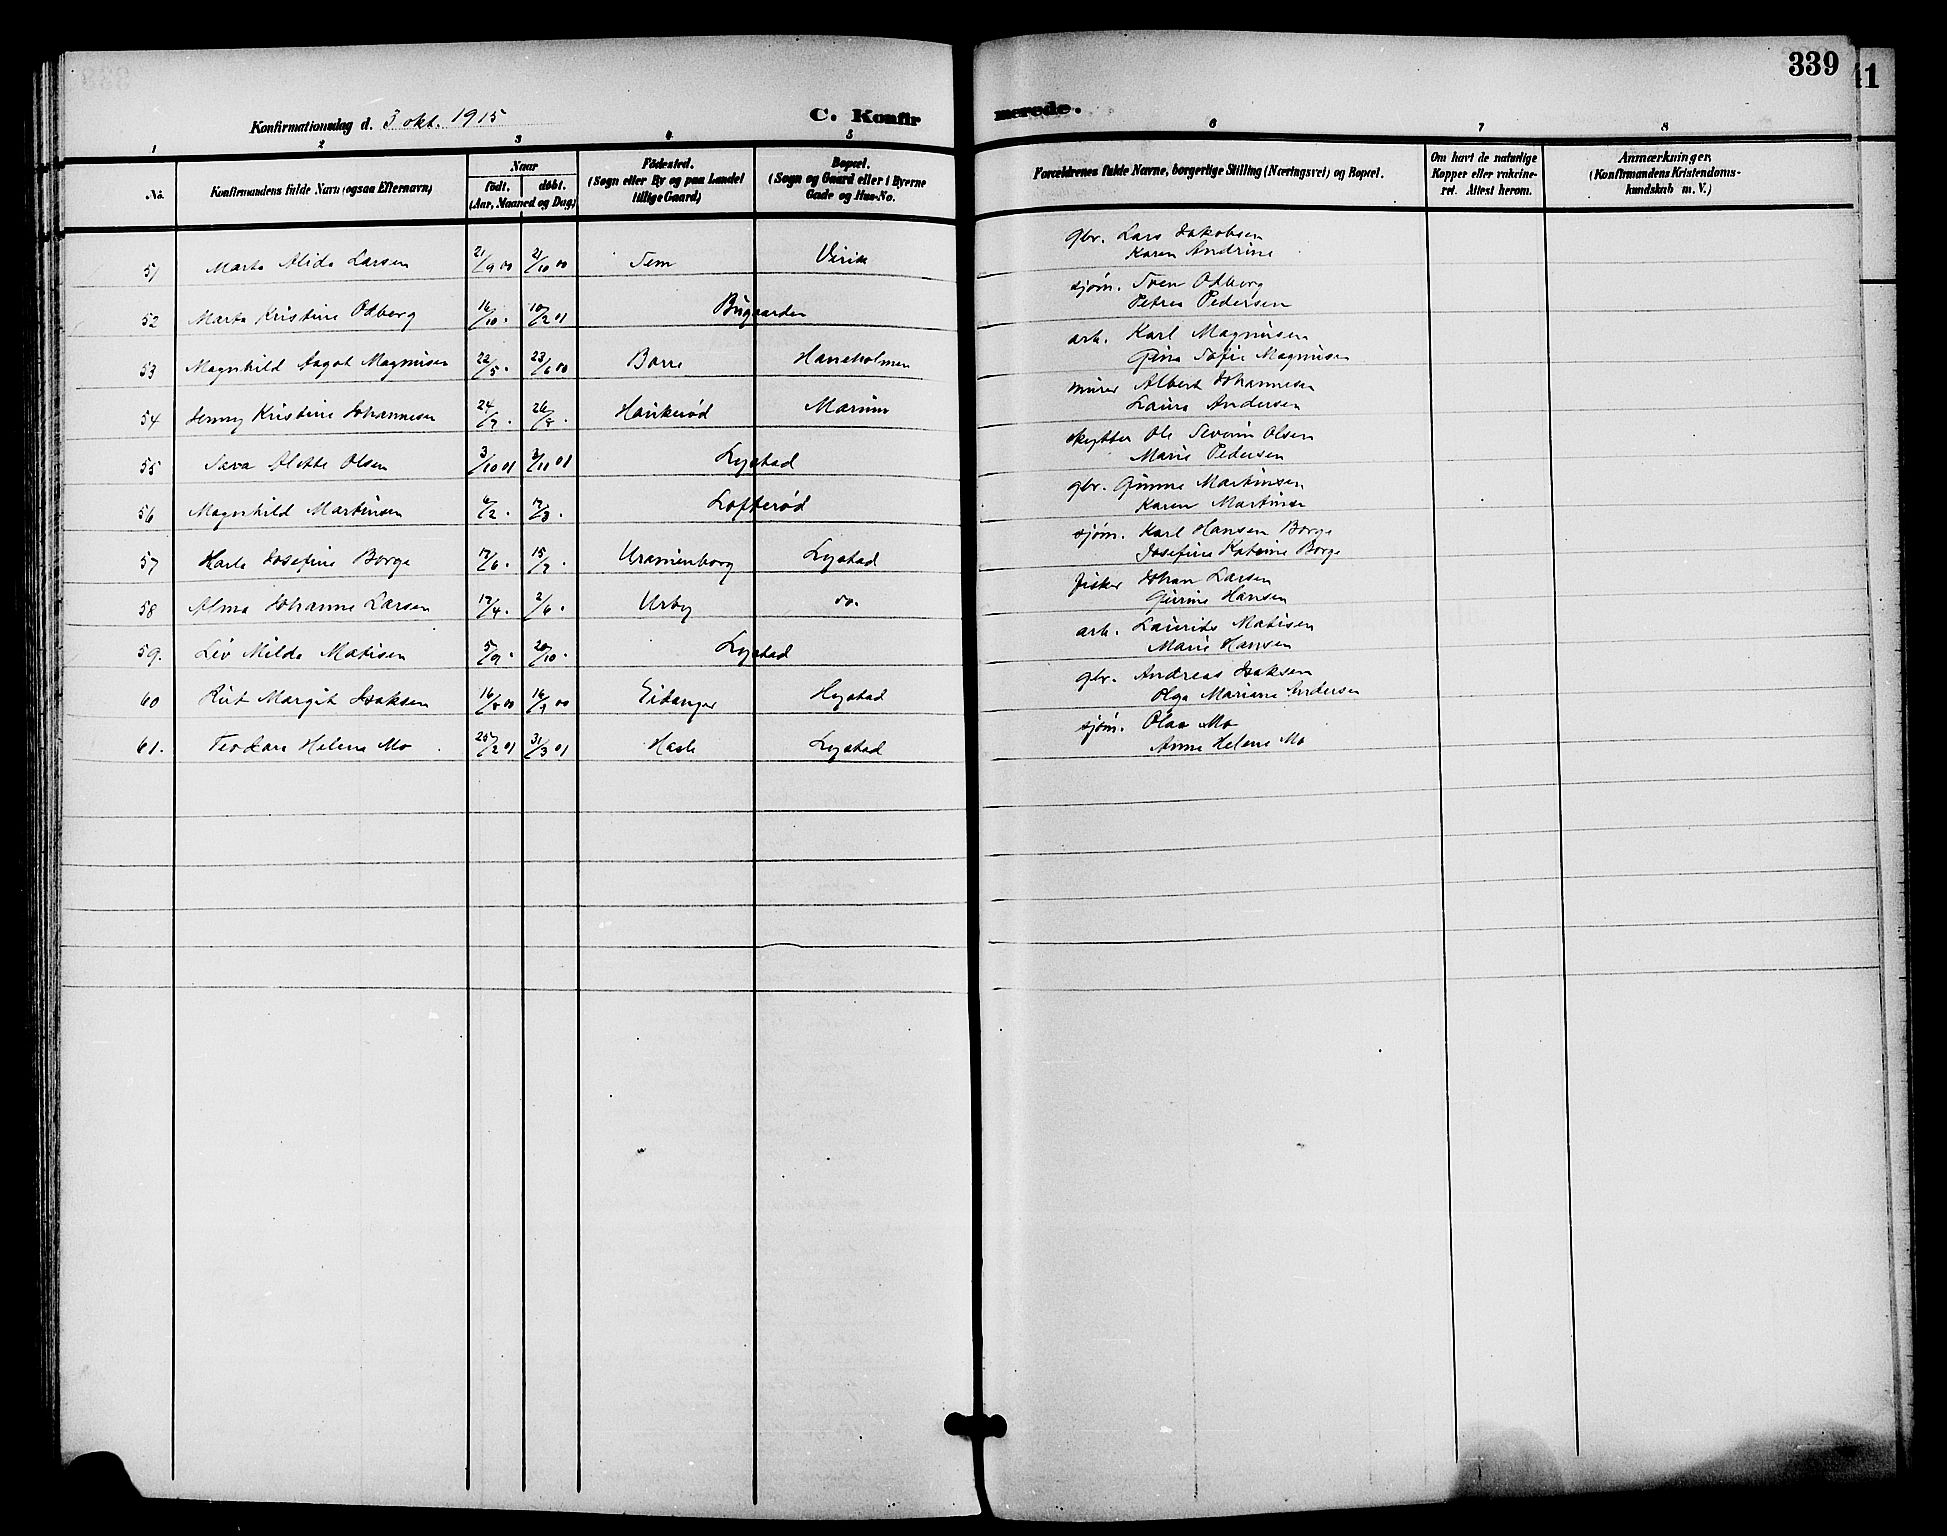 339
41
Konfirmationsdag d. 3 okt. 1915
C. Konfirmerede.
1 2 3 4 5 6 7 8
No.
Konfirmandens fulde Navn (ogsaa Efternavn)
Naar
født. døbt.
(Aar, Maaned og Dag)
Fødested.
(Sogn eller By og paa Landet
tillige Gaard)
Bopæl.
(Sogn og Gaard eller i Byerne
Gade og Hus-No.
Forældrenes fulde Navne, borgerlige Stilling (Næringsvei) og Bopæl.
Om havt de naturlige
Kopper eller vakcine-
ret. Attest herom.
Anmærkninger.
(Konfirmandens Kristendoms-
kundskab m. V.)
51 Marta Alida Larsen 21/9 00 21/10 00 Sem Virik gbr. Lars Jakobsen
Karen Andrine
52 Marta Kristine Odberg 16/10 . 10/2 01 Bugaarden sjøm. Sven Odberg
Petrea Pedersen
53 Magnhild Aagot Magnusen 22/5 . 23/6 00 Borre Haneholmen arb. Karl Magnusen
Gina Sofie Magnusen
54 Jenny Kristine Johannesen 24/7 . 26/8 . Haukerød Marum murer Albert Johannesen
Laura Andersen
55 Alette Olsen 3/10 01 3/11 01 Lystad skytter Ole Severin Olsen
Marie Pedersen
56 Magnhild Martinsen 6/2 . 17/3 . Lofterød gbr. Martinsen
Karen Martinsen
57 Karla Josefine Borge 17/6 . 15/7 . Uranienborg Lystad sjøm. Karl Hansen Borge
Josefine Katrine Borge
58 Alma Johanne Larsen 17/4 . 2/6 . Urby do. fisker Johan Larsen
Gurine Hansen
59. Liv Milda Matisen 5/9 . 20/10 . Lystad arb. Laurits Matisen
Marie Hansen
60 Rut Margit Isaksen 16/8 00 16/9 00 Eidanger Hystad gbr. Andreas Isaksen
Olga Mariane Andersen
61. Teodora Helene Mo 25/2 01 31/3 01 Hasle Lystad sjøm. Olaf Mo
Anna Helene Mo